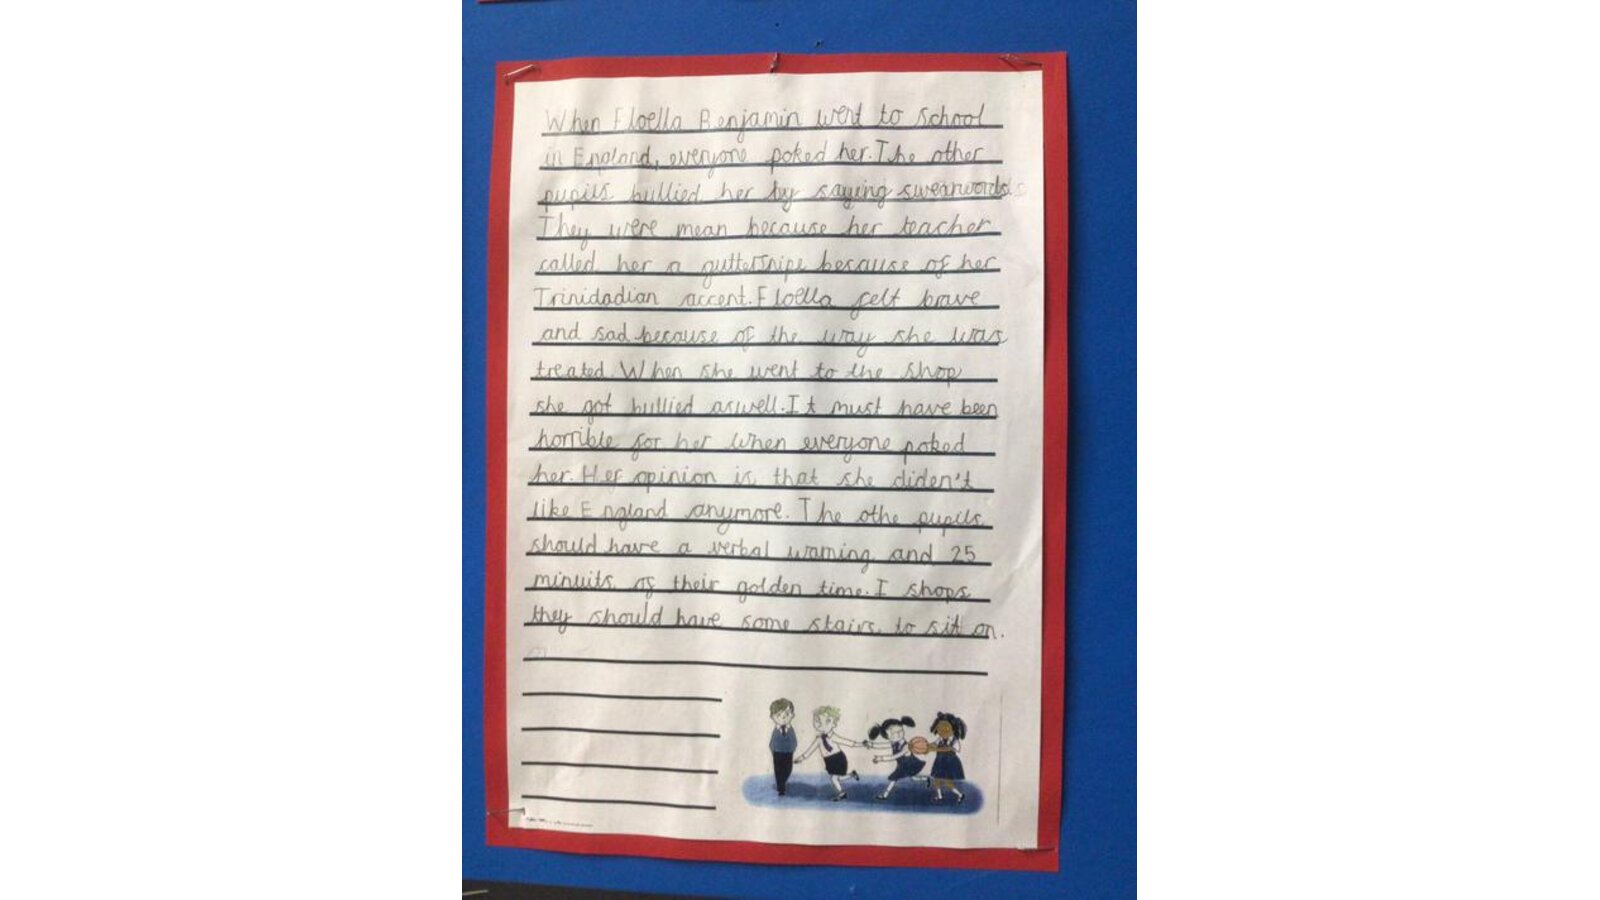 When Floella Benjamin went to school
in England, everyone poked her. The other
pupils bullied her by saying swearwords.
They were mean because her teacher
called her a guttersnipe because of her
Trinidadian accent. Floella felt brave
and sad because of the way she was
treated. When she went to the shop
she got bullied aswell. It must have been
horrible for her when everyone poked
her. Her opinion is that she diden't
like England anymore. The othe pupils
should have a verbal warning and 25
minuits of their golden time. I shops
they should have some stairs to sit on.